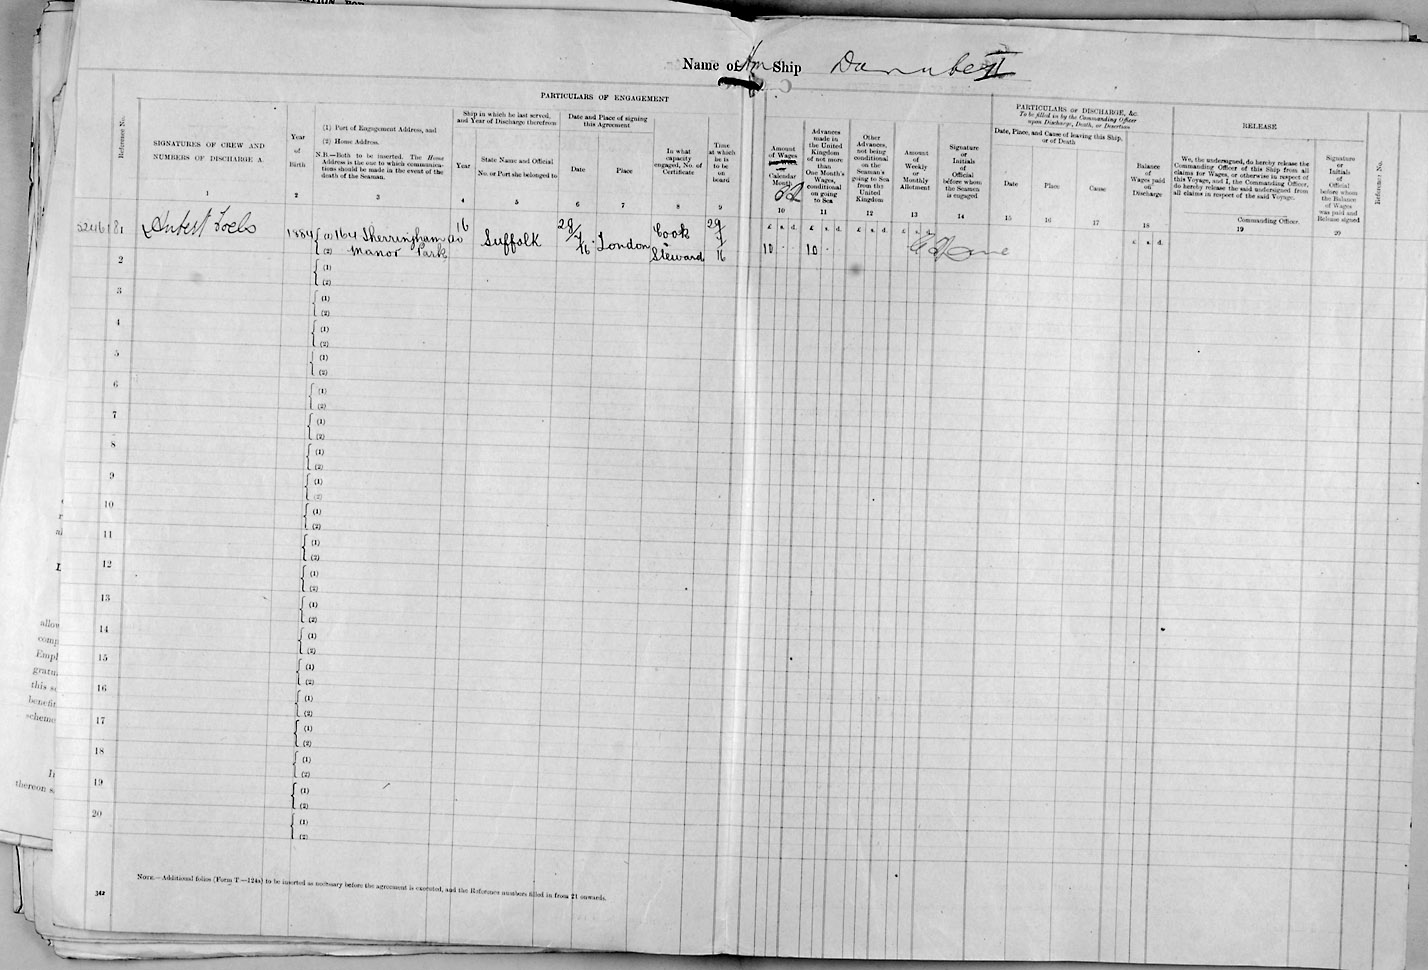 Name of HM Ship Danube II
PARTICULARS OF ENGAGEMENT
Reference No.
SIGNATURES OF CREW AND
NUMBERS OF DISCHARGE A.
1
Year
of
Birth
2
(1) Port of Engagement Address, and
(2) Home Address.
N.B.—Both to be inserted. The Home
Address is the one to which communica-
tions should be made in the event of the
death of the Seaman.
3
Ship in which he last served,
and Year of Discharge therefrom
Year
4
State Name and Official
No. or Port she belonged to
5
Date and Place of signing
this Agreement
Date
6
Place
7
In what
capacity
engaged, No. of
Certificate
8
Time
at which
he is
to be
on
board
9
Amount
of Wages
Calendar
Month
10
Advances
made in
the United
Kingdom
of not more
than
One Month's
Wages,
conditional
on going
to Sea
11
Other
Advances,
not being
conditional
on the
Seaman's
going to Sea
from the
United
Kingdom
12
Amount
of
Weekly
or
Monthly
Allotment
13
Signature
or
Initials
of
Official
before whom
the Seaman
is engaged
14
PARTICULARS OF DISCHARGE, &c.
To be filled in by the Commanding Officer
upon Discharge, Death, or Desertion
Date, Place, and Cause of leaving this Ship,
or of Death
Date
15
Place
16
Cause
17
Balance
of
Wages paid
on
Discharge
18
RELEASE
We, the undersigned, do hereby release the
Commanding Officer of this Ship from all
claims for Wages, or otherwise in respect of
this Voyage, and I, the Commanding Officer,
do hereby release the said undersigned from
all claims in respect of the said Voyage.
Commanding Officer.
19
Signature
or
Initials
of
Official
before whom
the Balance
of Wages
was paid and
Release signed
20
Reference No.
£ s. d. £ s. d. £ s. d. £ s. d. £ s. d.
1884 (1) 164 Sherringham Av 16 Suffolk 28/7/16 London Cook 29/7/16
(2) Manor Park Steward 10 10
2 (1)
(2)
3 (1)
(2)
4 (1)
(2)
5 (1)
(2)
6 (1)
(2)
7 (1)
(2)
8 (1)
(2)
9 (1)
(2)
10 (1)
(2)
11 (1)
(2)
12 (1)
(2)
13 (1)
(2)
14 (1)
(2)
15 (1)
(2)
16 (1)
(2)
17 (1)
(2)
18 (1)
(2)
19 (1)
(2)
20 (1)
(2)
NOTE.—Additional folios (Form T.—124a) to be inserted as necessary before the agreement is executed, and the Reference numbers filled in from 21 onwards.
342